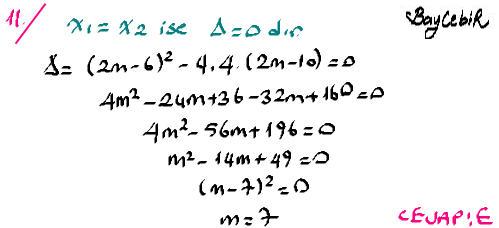 11/ x₁ = x₂ ise Δ=0 dır BayCebiR
Δ = (2m-6)² - 4.4.(2m-10) = 0
4m² - 24m + 36 - 32m + 160 = 0
4m² - 56m + 196 = 0
m² - 14m + 49 = 0
(m-7)² = 0
m = 7 CEVAP: E